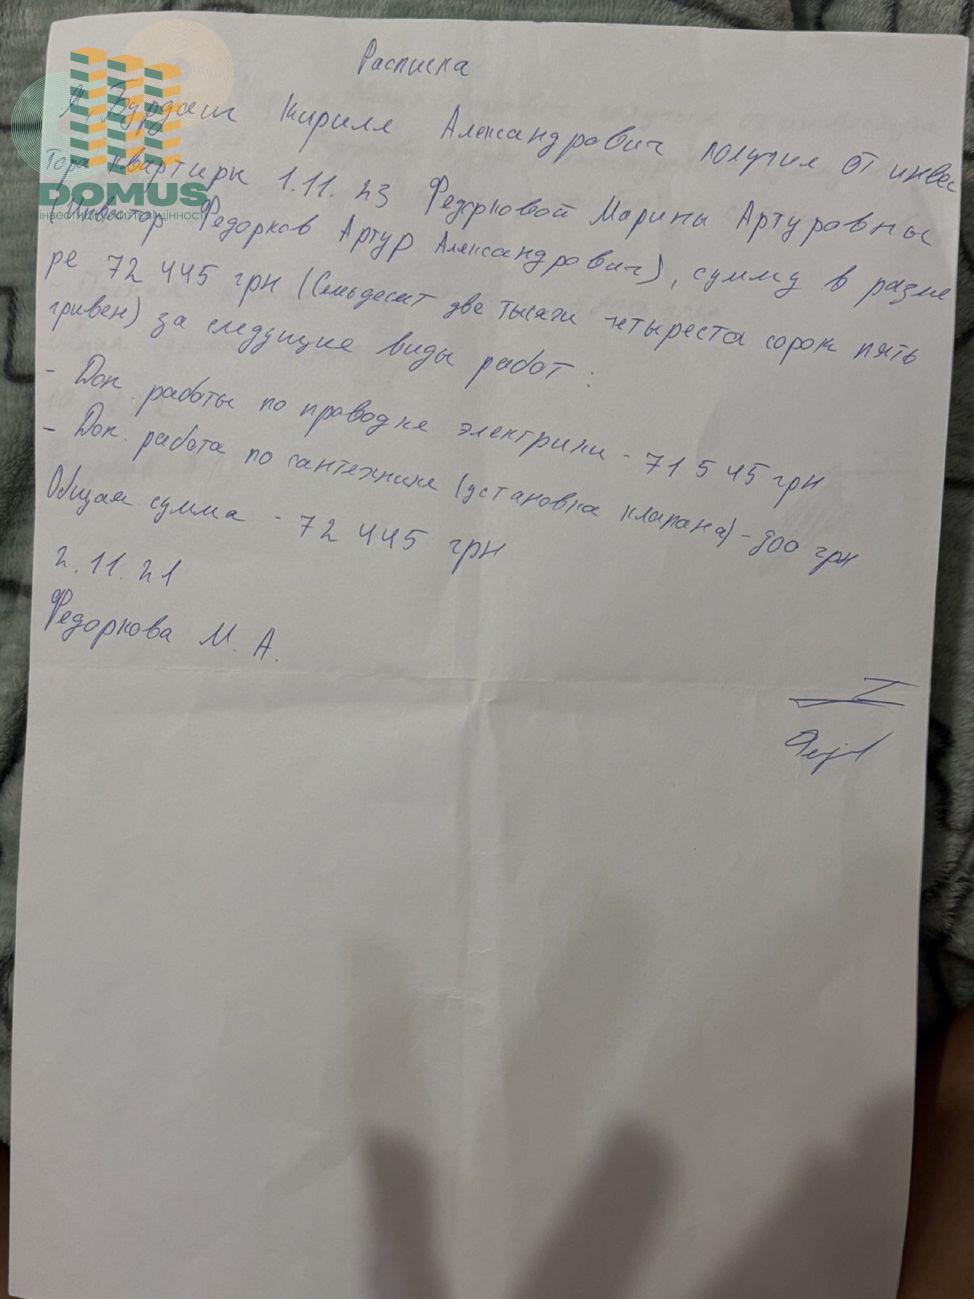 Расписка
Я, Бурдаш Кирилл Александрович получил от инвес
тора квартиры 1.11.23 Федорковой Марины Артуровны
(Инвестор Федорков Артур Александрович), сумму в разме
ре 72 445 грн (Семьдесят две тысячи четыреста сорок пять
гривен) за следующие виды работ:
- Доп. работы по проводке электрики - 71 545 грн
- Доп. работа по сантехнике (установка клапана) - 900 грн
Общая сумма - 72 445 грн
2.11.21
Федоркова М. А.
DOMUS
інвестиційні цінності